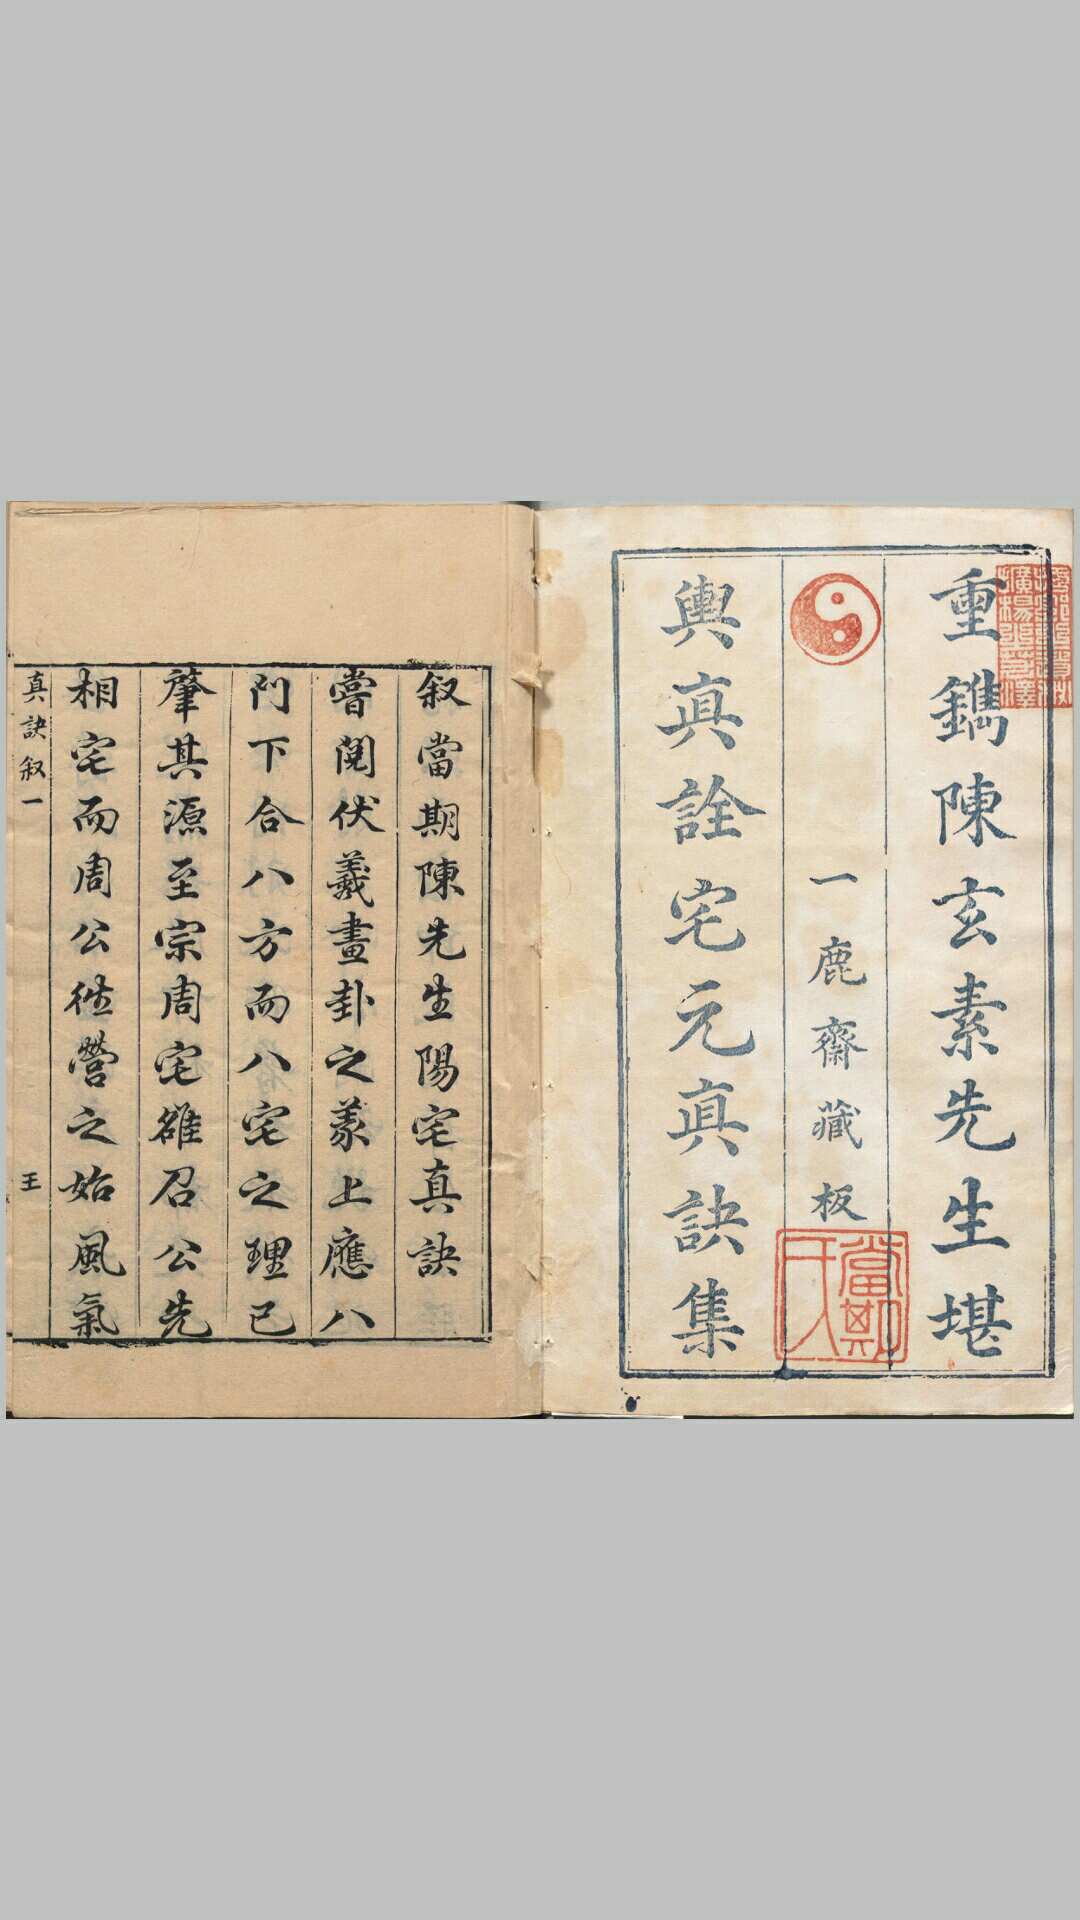 重鐫陳玄素先生堪
一鹿齋藏板
當期氏人
輿眞詮宅元眞訣集
叙當期陳先生陽宅真訣
嘗閱伏羲畫卦之義上應八
門下合八方而八宅之理已
肇其源至宗周宅雒召公先
相宅而周公徃營之始風氣
真訣叙一
王